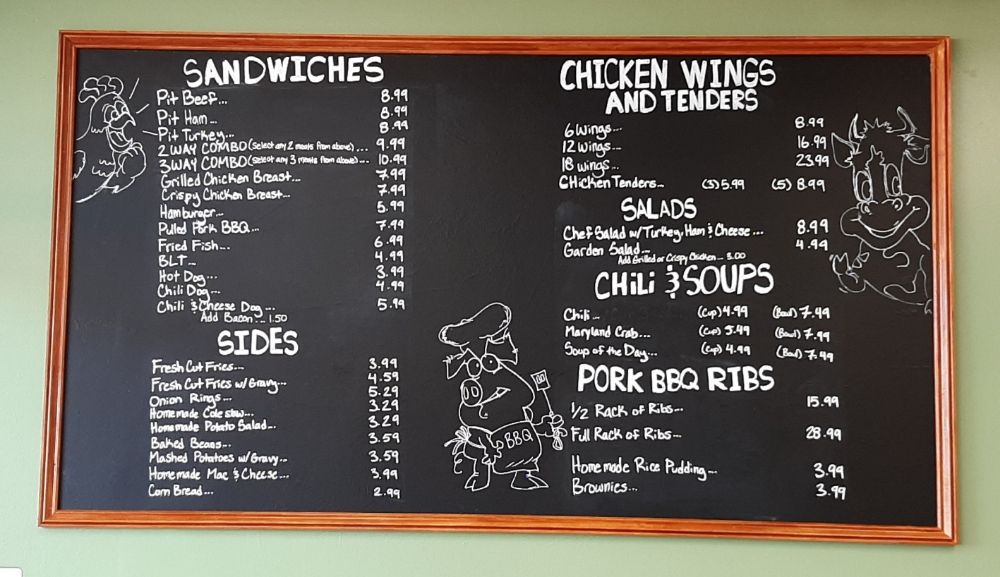 SANDWICHES
Pit Beef... 8.99
Pit Ham... 8.99
Pit Turkey... 8.99
2 WAY COMBO (select any 2 meats from above)... 9.99
3 WAY COMBO (select any 3 meats from above)... 10.99
Grilled Chicken Breast... 7.99
Crispy Chicken Breast... 7.99
Hamburger... 5.99
Pulled Pork BBQ... 7.99
Fried Fish... 6.99
BLT... 4.99
Hot Dog... 3.99
Chili Dog... 4.99
Chili & Cheese Dog... 5.99
Add Bacon... 1.50
SIDES
Fresh Cut Fries... 3.99
Fresh Cut Fries w/ Gravy... 4.59
Onion Rings... 5.29
Homemade Cole slaw... 3.29
Homemade Potato Salad... 3.29
Baked Beans... 3.59
Mashed Potatoes w/ Gravy... 3.59
Homemade Mac & Cheese... 3.99
Corn Bread... 2.99
BBQ
CHICKEN WINGS
AND TENDERS
6 Wings... 8.99
12 Wings... 16.99
18 wings... 23.99
CHicken Tenders... (3) 5.99 (5) 8.99
SALADS
Chef Salad w/ Turkey, Ham & Cheese... 8.99
Garden Salad... 4.99
Add Grilled or Crispy Chicken... 3.00
CHiLi & SOUPS
Chili... (Cup) 4.99 (Bowl) 7.49
Maryland Crab... (Cup) 5.49 (Bowl) 7.99
Soup of the Day... (Cup) 4.99 (Bowl) 7.49
PORK BBQ RIBS
1/2 Rack of Ribs... 15.99
Full Rack of Ribs... 28.99
Homemade Rice Pudding... 3.99
Brownies... 3.99